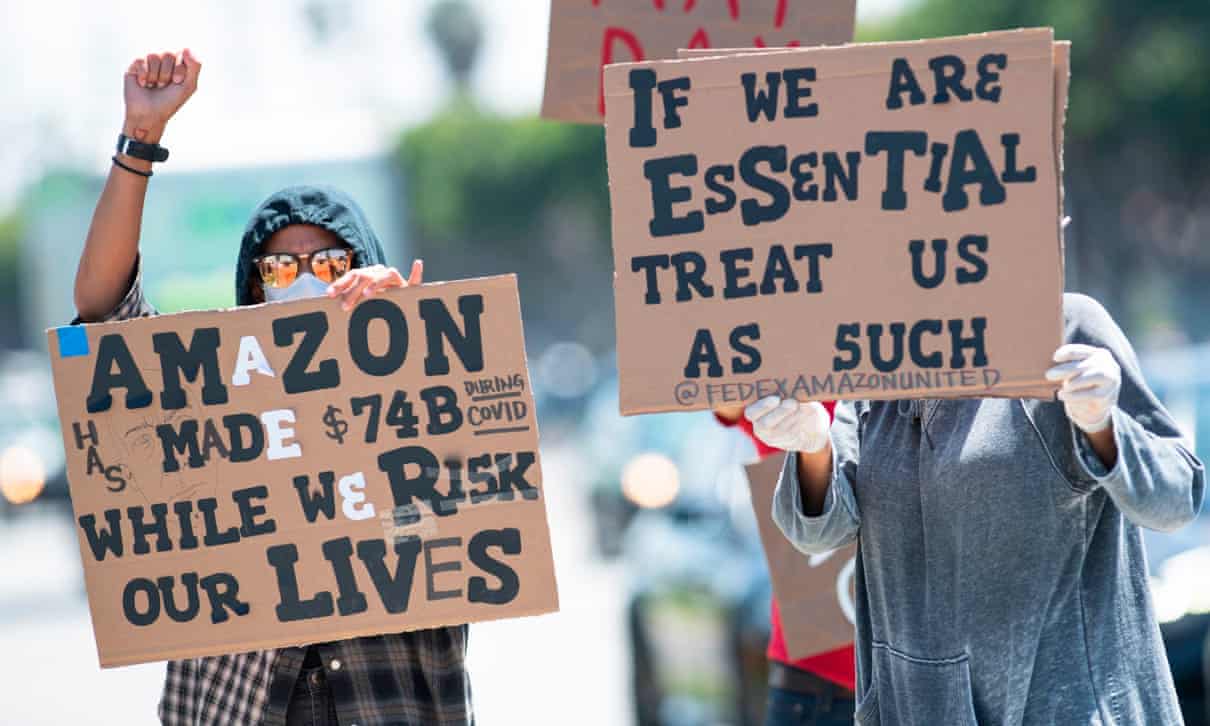 AMAZON
HAS MADE $74B DURING COVID
WHILE WE RISK
OUR LIVES
MAY
DAY
IF WE ARE
ESSENTIAL
TREAT US
AS SUCH
@FEDEXAMAZONUNITED